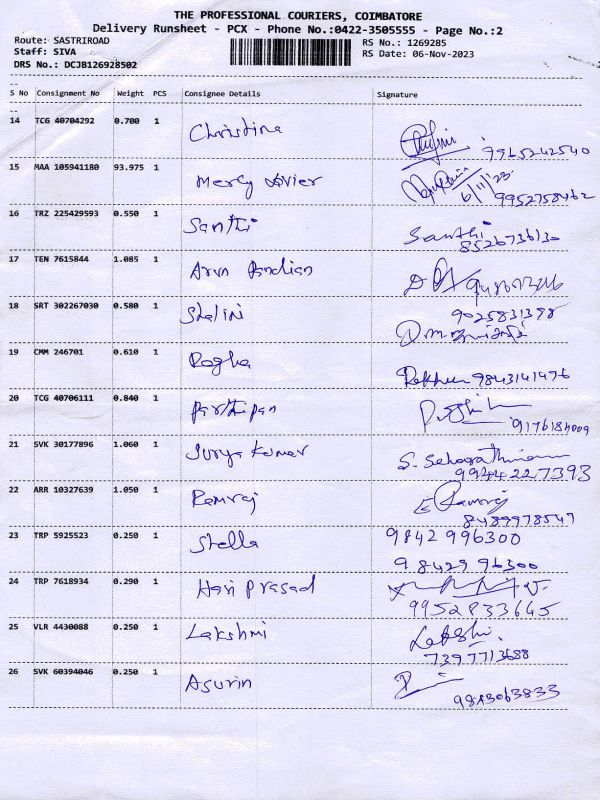 THE PROFESSIONAL COURIERS, COIMBATORE
Delivery Runsheet - PCX - Phone No.:0422-3505555 - Page No.:2
Route: SASTRIROAD RS No.: 1269285
Staff: SIVA RS Date: 06-Nov-2023
DRS No.: DCJB126928502
S No Consignment No Weight PCS Consignee Details Signature
14 TCG 40704292 0.700 1 Christina 9965242540
15 MAA 105941180 93.975 1 Mercy Xavier 6/11/23
9952758462
16 TRZ 225429593 0.550 1 Santhi Santhi
8526736130
17 TEN 7615844 1.085 1 Arun Pandian
18 SRT 302267030 0.580 1 Shalini 9025831398
19 CMM 246701 0.610 1 Ragha Rekha 9843141496
20 TCG 40706111 0.840 1 Parthipan
9176184009
21 SVK 30177896 1.060 1 Surya Kumar
9944227393
22 ARR 10327639 1.050 1 Ramraj E Ramraj
8489978547
23 TRP 5925523 0.250 1 Stella 9842996300
9842996300
24 TRP 7618934 0.290 1 Hari Prasad
9952833645
25 VLR 4430088 0.250 1 Lakshmi
7397713688
26 SVK 60394046 0.250 1 Asurin
9843063833